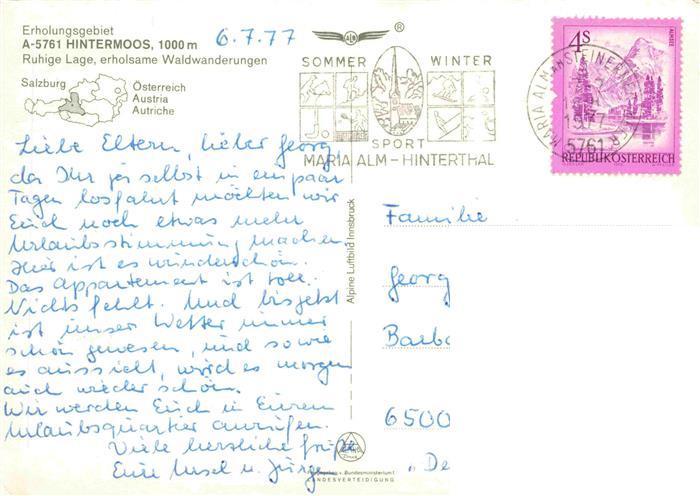 Erholungsgebiet
A-5761 HINTERMOOS, 1000 m
Ruhige Lage, erholsame Waldwanderungen
6.7.77
Salzburg
Österreich
Austria
Autriche
®
SOMMER WINTER
SPORT
MARIA ALM – HINTERTHAL
4s
ALMSEE
REPUBLIK ÖSTERREICH
MARIA ALM AM STEINERNEN MEER
5761
Liebe Eltern, lieber Georg
da Ihr ja selbst in ein paar
Tagen losfahrt möchten wir
Euch noch etwas mehr
Urlaubsstimmung machen
Hier ist es wunderschön.
Das Appartement ist toll.
Nichts fehlt. Und bis jetzt
ist unser Wetter immer
schön gewesen, und so wie
es aussieht, wird es morgen
auch wieder schön.
Wir werden Euch in Eurem
Urlaubsquartier anrufen.
Viele herzliche Grüße
Eure Ursel u. Jürgen
Alpine Luftbild Innsbruck
Freigegeben v. Bundesministerium f.
LANDESVERTEIDIGUNG
Familie
Georg
Barba
6500
"De